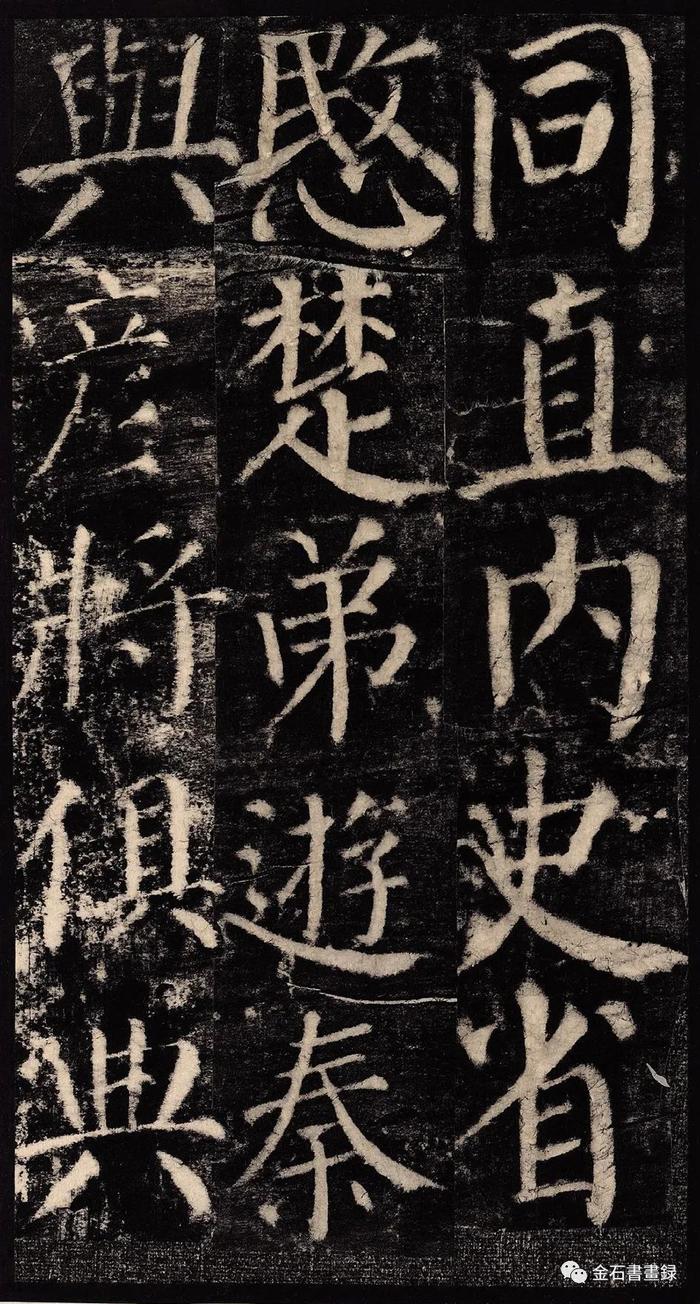 同直内史省
愍楚弟遊秦
與彦將俱典
金石書畫録